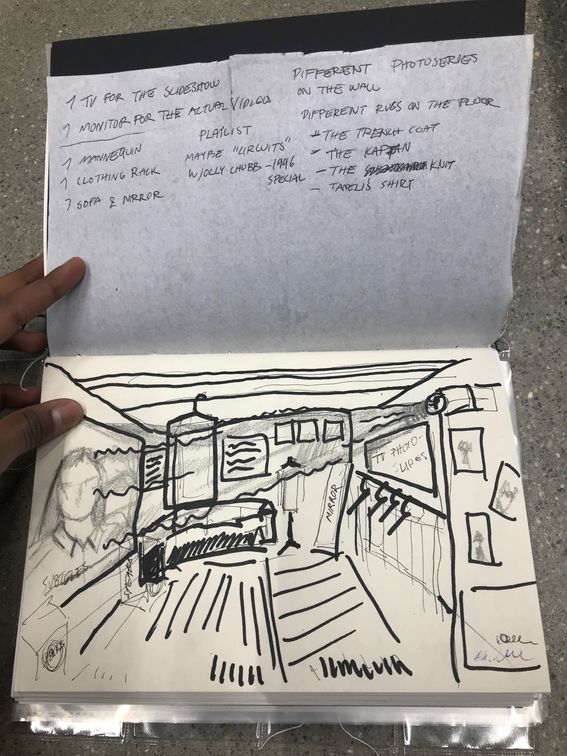 1 TV FOR THE SLIDESHOW
1 MONITOR FOR THE ACTUAL VIDEOS
1 MANNEQUIN
1 CLOTHING RACK
1 SOFA & MIRROR
PLAYLIST
MAYBE "CIRCUITS"
W/OLLY CHUBB -1996
SPECIAL
DIFFERENT PHOTOSERIES
ON THE WALL
DIFFERENT RUGS ON THE FLOOR
- THE TRENCH COAT
- THE KAFTAN
- THE KNIT
- SHIRT
TV PHOTO-
SLIDES
MIRROR
SUBTITLES